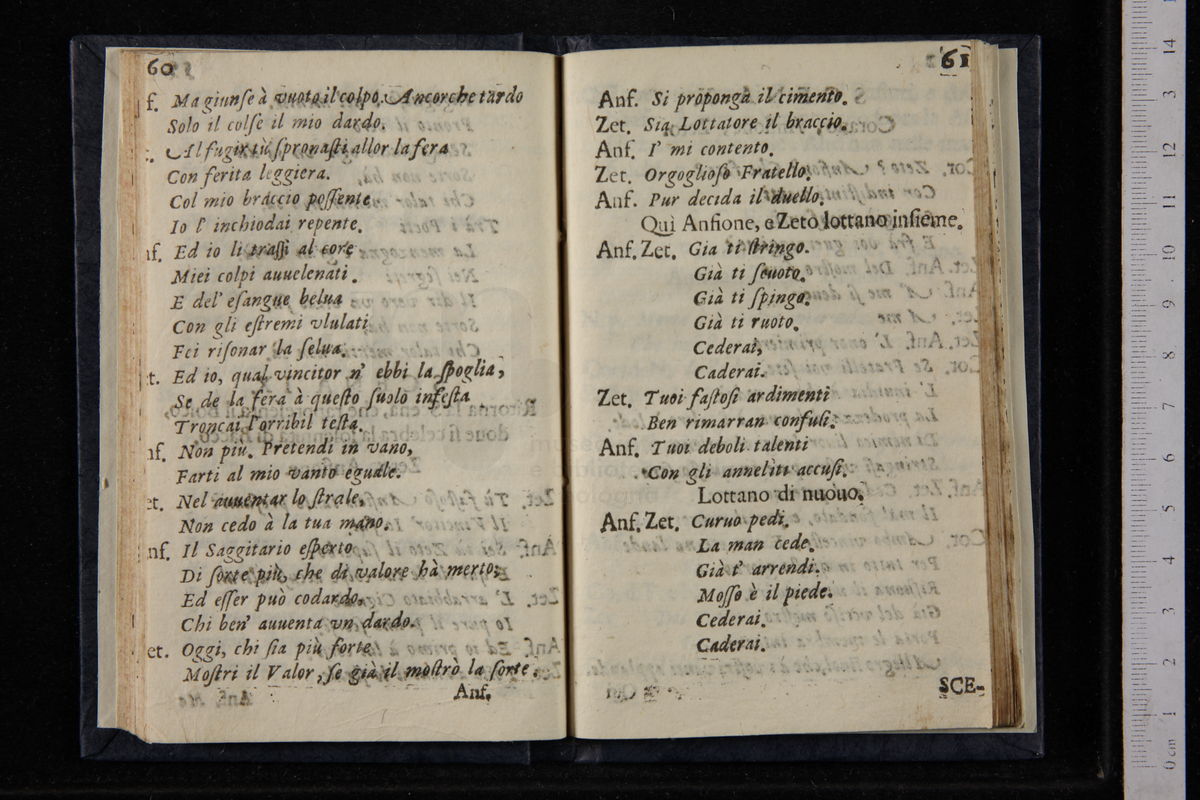 60
f. Ma giunſe à vuoto il colpo. Ancorche tardo
Solo il colſe il mio dardo.
t. Al fugir tù ſpronaſti allor la fera
Con ferita leggiera.
Col mio braccio poſſente
Io l' inchiodai repente.
nf. Ed io li traſſi al core
Miei colpi auuelenati.
E del' eſangue belua
Con gli eſtremi vlulati
Fei riſonar la ſelua.
et. Ed io, qual vincitor n' ebbi la ſpoglia,
Se de la fera à queſto ſuolo infeſta
Troncai l'orribil teſta.
nf. Non più. Pretendi in vano,
Farti al mio vanto eguale.
et. Nel auuentar lo ſtrale,
Non cedo à la tua mano.
nf. Il Saggitario eſperto
Di ſorte più, che di valore hà merto;
Ed eſſer può codardo,
Chi ben' auuenta vn dardo.
et. Oggi, chi ſia più forte
Moſtri il Valor, ſe già il moſtrò la ſorte.
Anf.
61
Anf. Si proponga il cimento.
Zet. Sia Lottatore il braccio.
Anf. I' mi contento.
Zet. Orgoglioſo Fratello.
Anf. Pur decida il duello.
Quì Anfione, e Zeto lottano inſieme.
Anf. Zet. Gia ti ſtringo.
Già ti ſcuoto.
Già ti ſpingo.
Già ti ruoto.
Cederai,
Caderai.
Zet. Tuoi faſtoſi ardimenti
Ben rimarran confuſi.
Anf. Tuoi deboli talenti
Con gli anneliti accuſi.
Lottano di nuouo.
Anf. Zet. Curuo pedi.
La man cede.
Già t' arrendi.
Moſſo è il piede.
Cederai.
Caderai.
SCE-